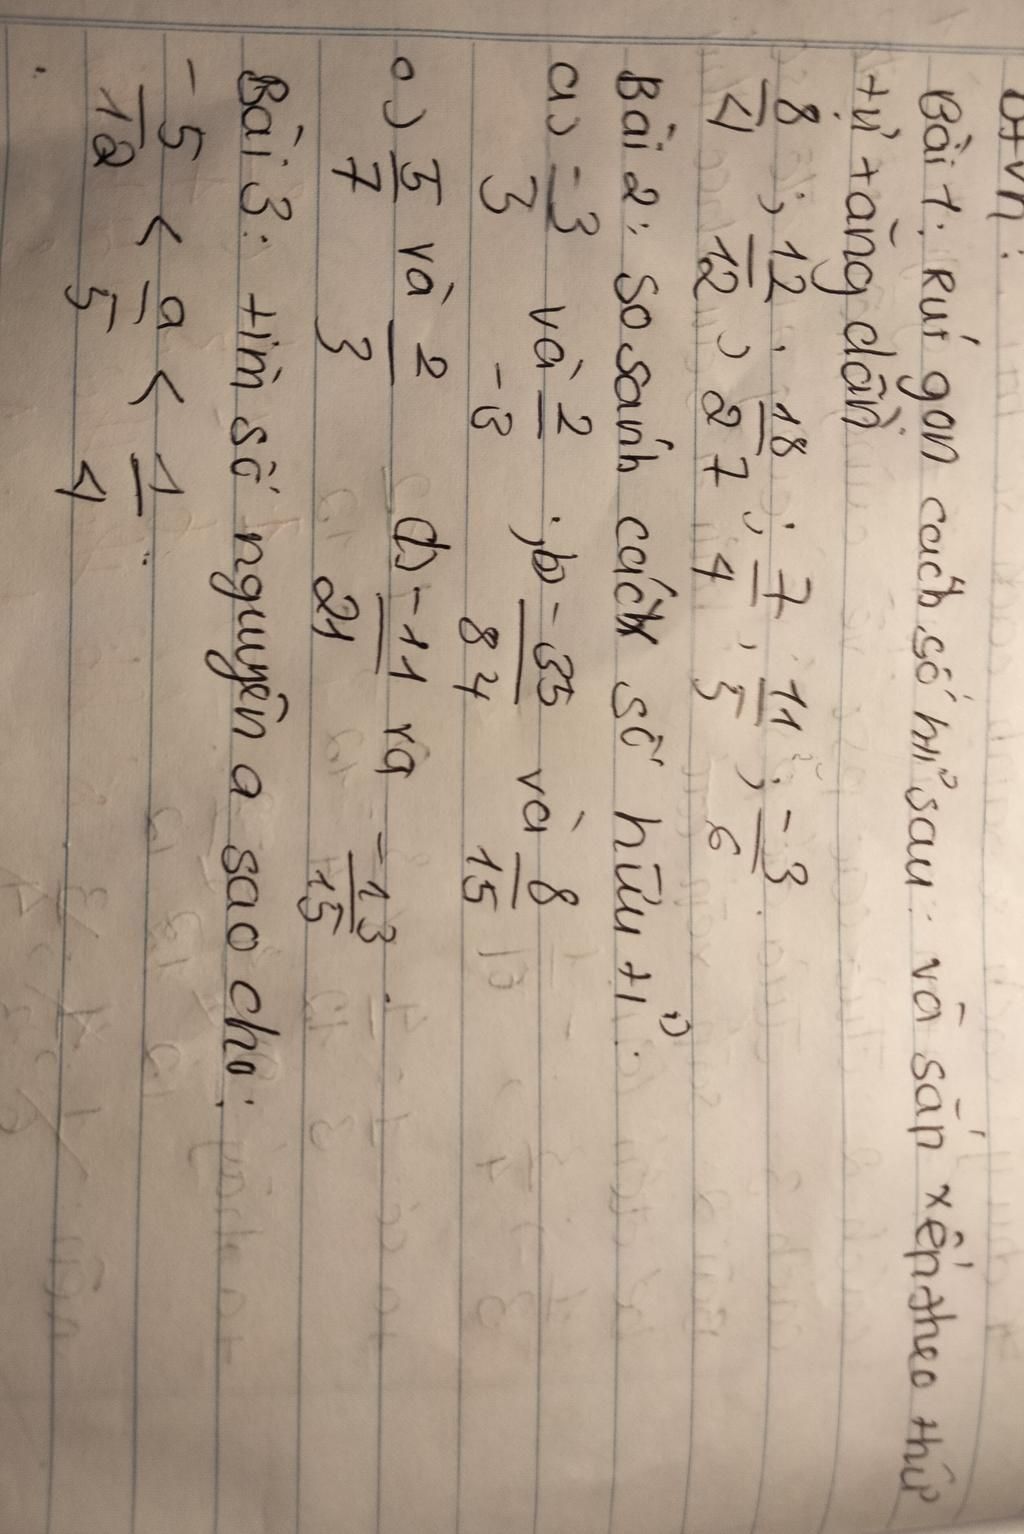 Btvn:
Bài 1: Rút gọn các số h.tỉ sau: và sắp xếp theo thứ
tự tăng dần
8/4 ; 12/12 ; 18/27 ; 7/4 ; 11/5 ; -3/6
Bài 2: So sánh các số hữu tỉ.
a) -3/3 và 2/-3 ; b) -35/84 và 8/15
c) 5/7 và 2/3 d) -11/21 và -13/15
Bài 3: tìm số nguyên a sao cho:
-5/12 < a/5 < 1/4